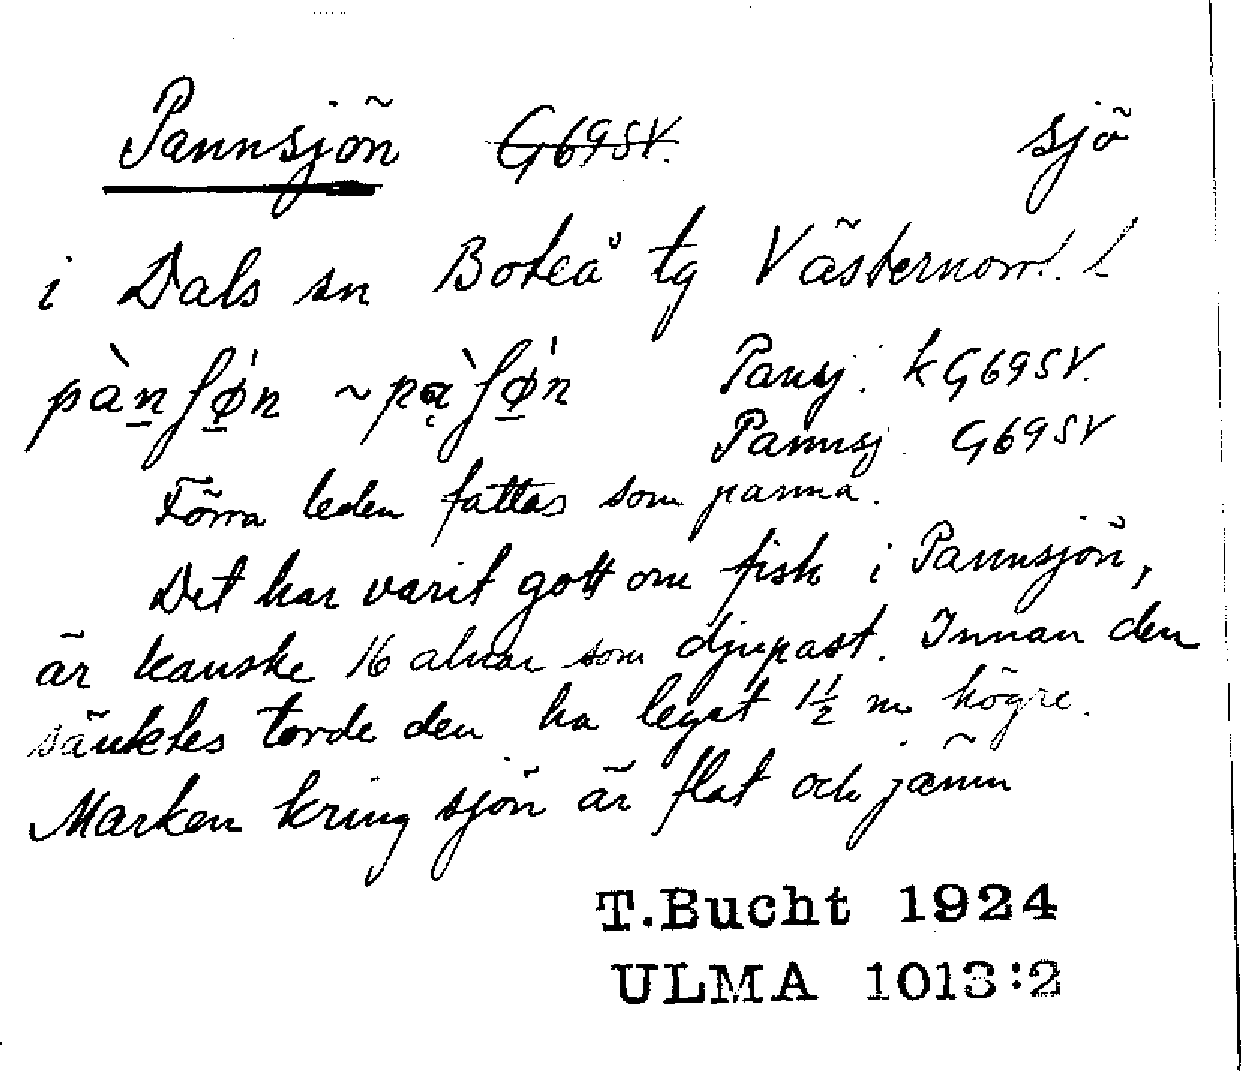 Pannsjön G69SV. sjö
i Dals sn Boteå tg Västernorrl. l
pànʃø̀n ~ pàʃø̀n Pansj. kG69SV.
Pannsj. G69SV
Förra leden fattas som panna.
Det har varit gott om fisk i Pannsjön,
är kanske 16 alnar som djupast. Innan den
sänktes torde den ha legat 1½ m högre.
Marken kring sjön är flat och jämn
T.Bucht 1924
ULMA 1013:2